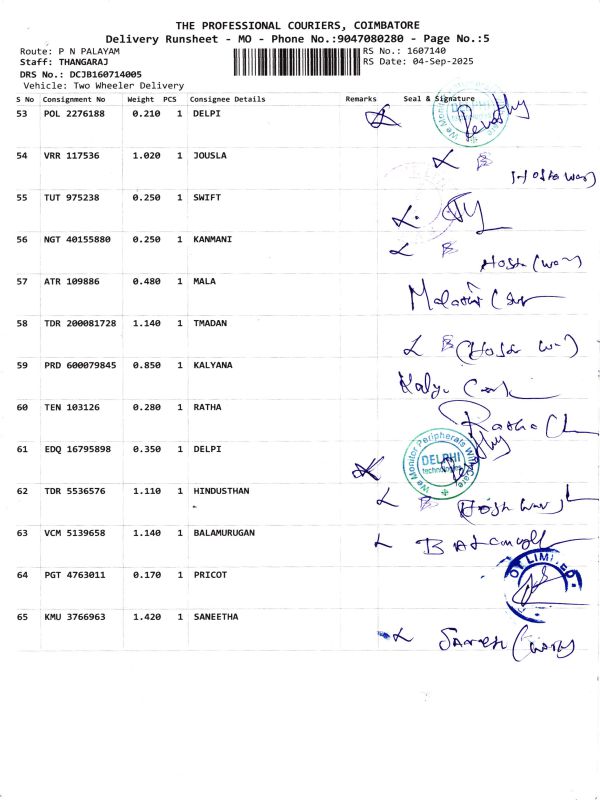 THE PROFESSIONAL COURIERS, COIMBATORE
Delivery Runsheet - MO - Phone No.:9047080280 - Page No.:5
Route: P N PALAYAM RS No.: 1607140
Staff: THANGARAJ RS Date: 04-Sep-2025
DRS No.: DCJB160714005
Vehicle: Two Wheeler Delivery
S No Consignment No Weight PCS Consignee Details Remarks Seal & Signature
53 POL 2276188 0.210 1 DELPI
54 VRR 117536 1.020 1 JOUSLA
55 TUT 975238 0.250 1 SWIFT
56 NGT 40155880 0.250 1 KANMANI
57 ATR 109886 0.480 1 MALA
58 TDR 200081728 1.140 1 TMADAN
59 PRD 600079845 0.850 1 KALYANA
60 TEN 103126 0.280 1 RATHA
We Monitor Peripherals With Care
61 EDQ 16795898 0.350 1 DELPI DELPHI
technologies
62 TDR 5536576 1.110 1 HINDUSTHAN
63 VCM 5139658 1.140 1 BALAMURUGAN
64 PGT 4763011 0.170 1 PRICOT LIMITED
65 KMU 3766963 1.420 1 SANEETHA